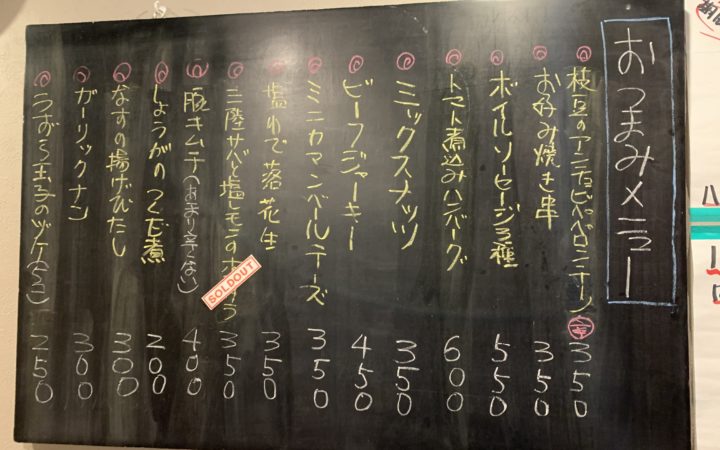 おつまみメニュー
枝豆のアンチョビペペロンチーノ 350
お好み焼き串 350
ボイルソーセージ3種 550
トマト煮込みハンバーグ 600
ミックスナッツ 350
ビーフジャーキー 450
ミニカマンベールチーズ 350
塩ゆで落花生 350
三陸サバと塩レモンの 350
SOLDOUT
豚キムチ(あまり辛くない) 400
しょうがのつくだ煮 200
なすの揚げびたし 300
ガーリックナン 300
うずら玉子のヅケ(5コ) 250